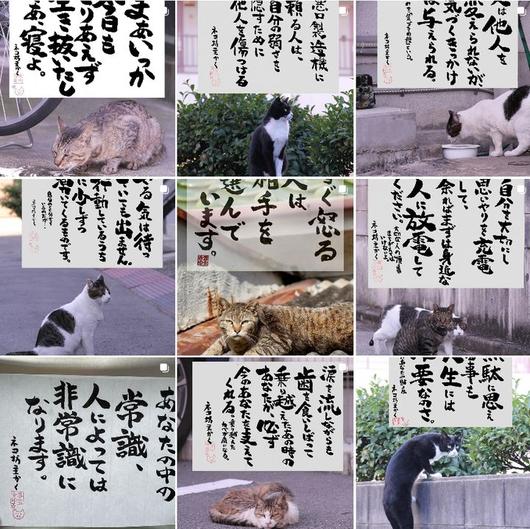 まあいっか
今日も
とりあえず
生き抜いたし
さあ、寝よ。
ネコ坊主かく
悪口製造機に
頼る人は、
自分の弱さを
隠すために
他人を傷つける
ネコ坊主かく
は他人を
変えられないが
気づくきっかけ
は与えられる。
やる気は待っ
ていても出ません。
行動しているうち
に少しずつ
湧いてくるものです。
すぐ怒る
人は
相手を
選んで
います。
自分を大切にし
思いやりを充電
して、
余ればまずは身近な
人に放電して
ください。
ネコ坊主かく
涙を流しながらも
歯を食いしばって
乗り越えたあの時の
あなたが、必ず
今のあなたを支えて
くれる。
ネコ坊主かく
あなたの中の
常識、
人によっては
非常識に
なります。
ネコ坊主かく
無駄に思え
事も
人生には
必要なのさ。